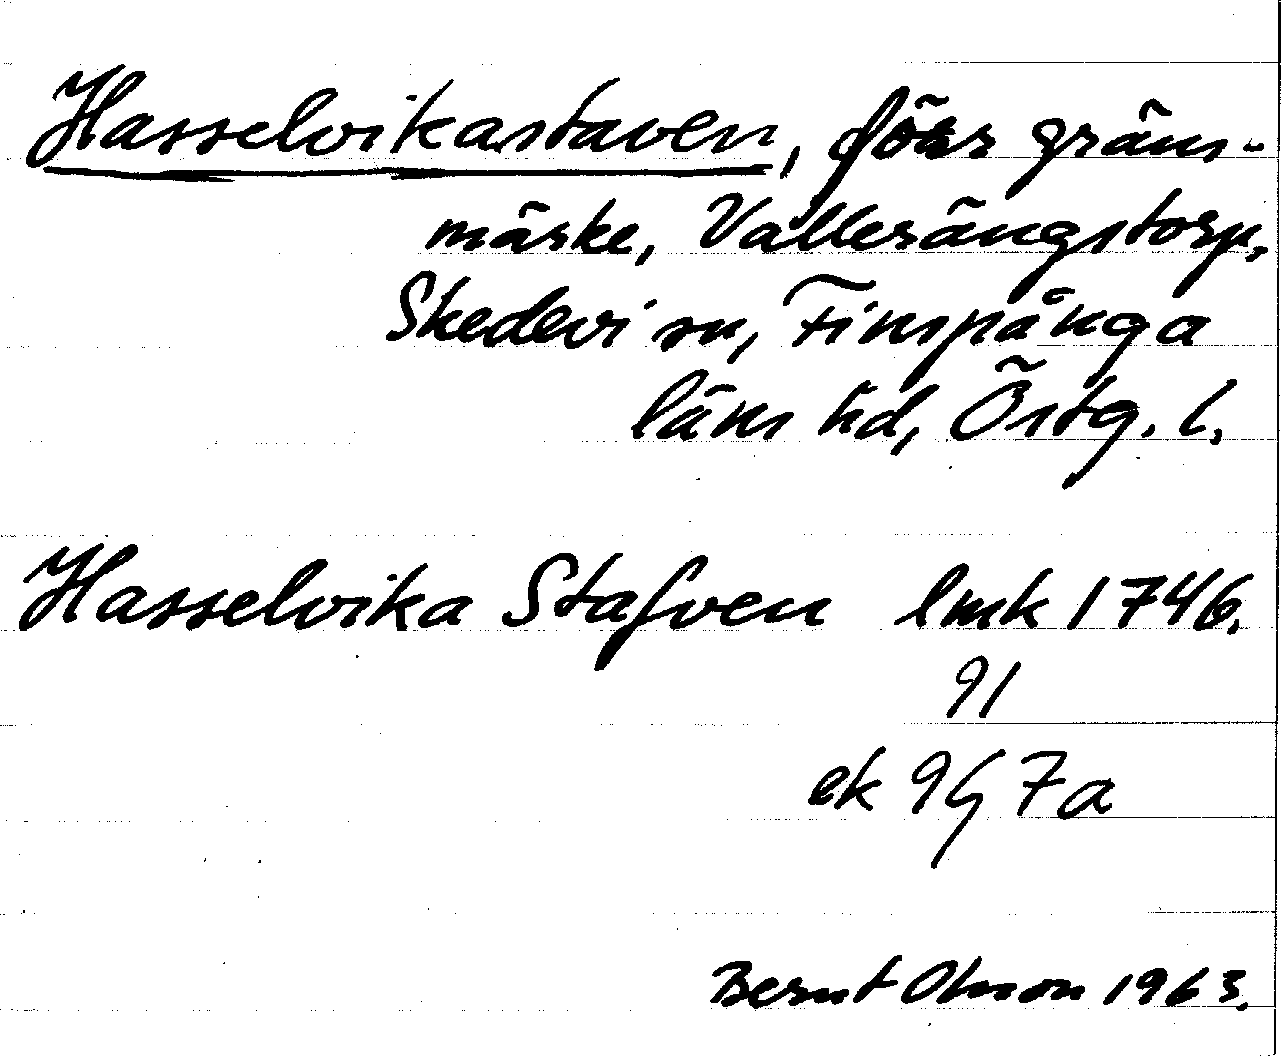 Hasselvikastaven, förr gräns-
märke, Vallerängstorp,
Skedevi sn, Finspånga
läns hd, Östg. l.
Hasselvika Stafven lmk 1746.
91
ek 9G 7a
Bernt Olsson 1963.